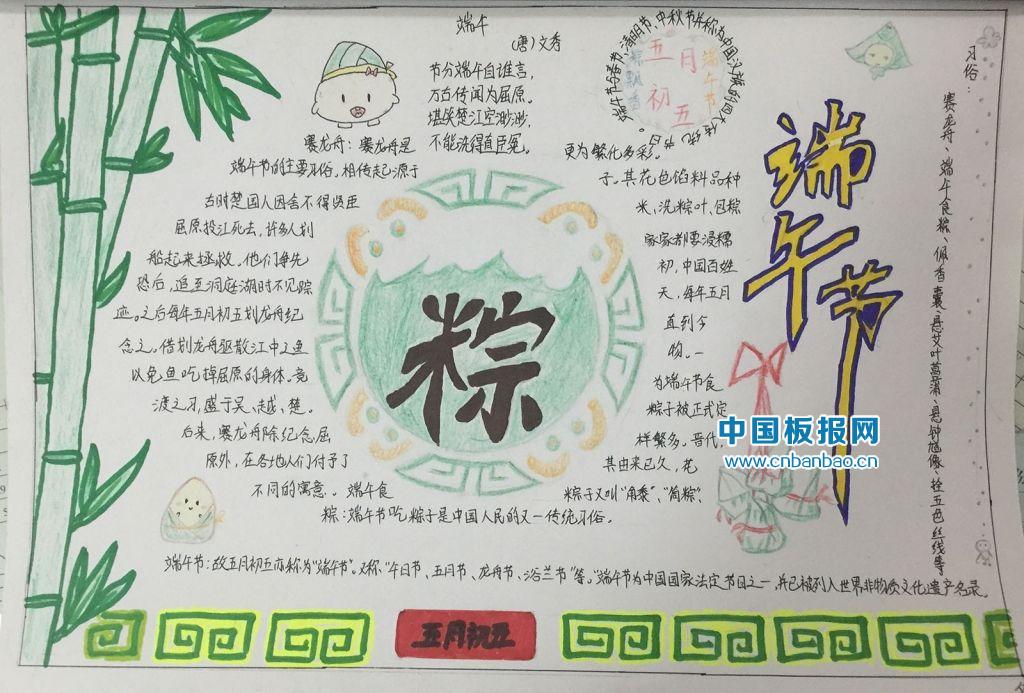 端午
(唐)文秀
节分端午自谁言，
万古传闻为屈原。
堪笑楚江空渺渺，
不能洗得直臣冤。
端午节与春节、清明节、中秋节并称为中国汉族的四大传统节日。
五月
初五
粽飘香
端午节
端午节
习俗：
赛龙舟、端午食粽、佩香囊、悬艾叶菖蒲、悬钟馗像、拴五色丝线等
赛龙舟：赛龙舟是
端午节的主要习俗。相传起源于
古时楚国人因舍不得贤臣
屈原投江死去，许多人划
船起来拯救。他们争先
恐后，追至洞庭湖时不见踪
迹。之后每年五月初五划龙舟纪
念之。借划龙舟驱散江中之鱼
以免鱼吃掉屈原的身体。竞
渡之习，盛于吴、越、楚。
后来，赛龙舟除纪念屈
原外，在各地人们付予了
不同的寓意。
端午食
粽：端午节吃粽子是中国人民的又一传统习俗。
粽子又叫“角黍”、“筒粽”、
其由来已久，花
样繁多。晋代，
粽子被正式定
为端午节食
物。一
直到今
天，每年五月
初，中国百姓
家家都要浸糯
米、洗粽叶、包粽
子。其花色馅料品种
更为繁化多彩。
粽
中国板报网
www.cnbanbao.cn
端午节：故五月初五亦称为“端午节”。又称“午日节、五月节、龙舟节、浴兰节”等。“端午节为中国国家法定节日之一，并已被列入世界非物质文化遗产名录。
五月初五